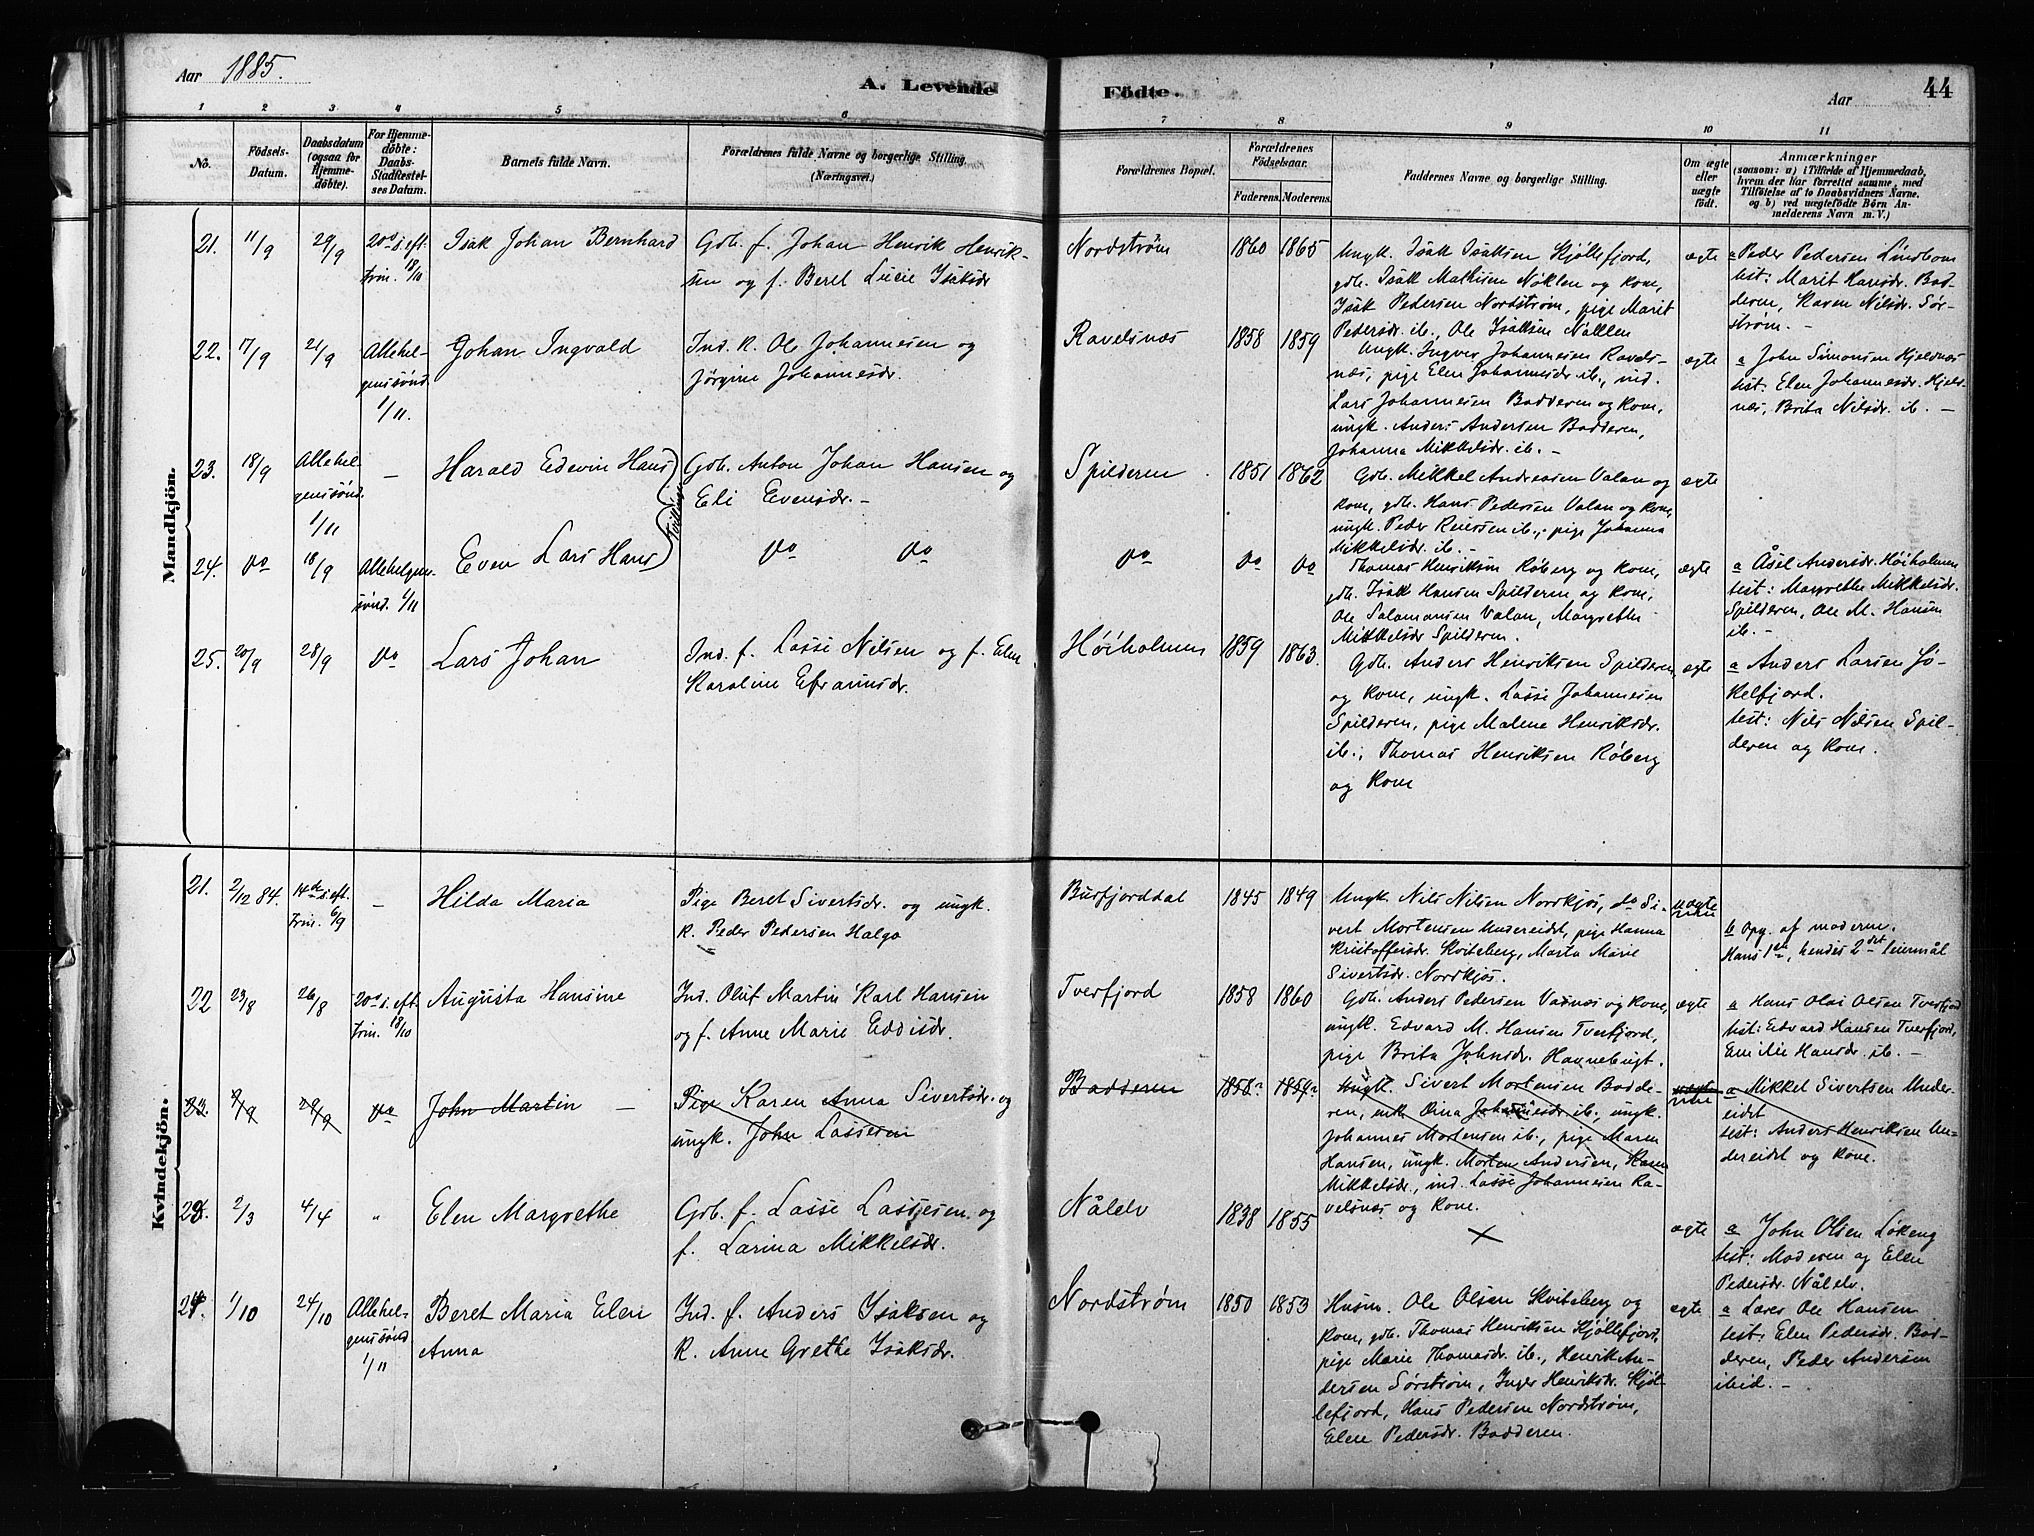 Aar 1885.
A. Levende Födte.
Aar
44
1 2 3 4 5 6 7 8 9 10 11
No.
Födsels-Datum.
Daabsdatum (ogsaa for Hjemmedöbte).
For Hjemmedöbte: Daabs-Stadfæstelses Datum.
Barnets fulde Navn.
Forældrenes fulde Navne og borgerlige Stilling (Næringsvei.)
Forældrenes Bopæl.
Forældrenes Födselsaar.
Faderens. Moderens.
Faddernes Navne og borgerlige Stilling.
Om ægte eller uægte födt.
Anmærkninger
(saasom: a) i Tilfælde af Hjemmedaab,
hvem der har forrettet samme, med
Tilföielse af to Daabsvidners Navne.
og b) ved uægtefödte Börn An-
melderens Navn m. V.)
Mandkjön.
21. 11/9 29/9 20de s. eft. Trin. 18/10 Isak Johan Bernhard
Gdb. f. Johan Henrik Henrik-
sen og f. Beret Lucie Isaksdr
Nordstrøm 1860 1865
Ungk. Isak Isaksen Kjöllefjord,
gdb. Isak Mathisen Nöklen og kone,
Isak Pedersen Nordstrøm, pige Marit
Pedersdr. ib., Ole Isaksen
ægte
a Peder Pedersen Lindbom
test: Marit Hansdr. Bad-
deren, Karen Nilsdr. Sör-
strøm. -
22. 17/9 21/9 Allehel-
genssönd. 1/11. Johan Ingvald
Ind. K. Ole Johannesen og
Jørgine Johannesdr.
Ravelsnæs 1858 1859
Ungk. Ingver Johannesen Ravels-
næs, pige Elen Johannesdr ib., ind.
Lars Johannesen Badderen og kone,
ungk. Anders Andersen Badderen,
Johanna Mikkelsdr. ib. -
ægte
a John Simonsen Kjelsnæs
test: Elen Johannesdr. Kjels-
næs, Brita Nilsdr. ib. -
23. 18/9 Allehel-
genssönd. 1/11 - Harald Edevin Hans
Tvillinger
Gdb. Anton Johan Hansen og
Eli Evensdr. -
Spilderen 1851 1862
Gdb. Mikkel Andreasen Valan og
kone, gdb. Hans Pedersen Valan og kone,
ungk. Peder Reiersen ib., pige Johanna
Mikkelsdr. ib. -
ægte
24. do 18/9 Allehelgens-
sönd. 1/11 Even Lars Hans
do do
do do do
Thomas Henriksen Röberg og kone,
gdb. Isak Hansen Spilderen og kone,
Ole Salamonsen Valan, Margrethe
Mikkelsdr Spilderen.
ægte
a Åsel Andersdr. Höiholmen
test: Margrethe Mikkelsdr.
Spilderen, Ole M. Hansen
ib. -
25. 20/9 28/9 do Lars Johan
Ind. f. Lasse Nilsen og f. Elen
Karoline Efraimsdr.
Höiholmen 1859 1863.
Gdb. Anders Henriksen Spilderen
og kone, ungk. Lasse Johannesen
Spilderen, pige Malene Henriksdr.
ib., Thomas Henriksen Röberg
og kone
ægte
a Anders Larsen Jö-
kelfjord.
test: Nils Nilsen Spil-
deren og kone.
Kvindekjön.
21. 2/12 84. 14de s. eft.
Trin. 6/9 - Hilda Maria
Pige Beret Sivertsdr. og ungk.
K. Peder Pedersen Halgo
Burfjorddal 1845 1849
Ungk. Nils Nilsen Nordkjos, do Si-
vert Mortensen Undereidet, pige Hanna
Kristoffersdr. Kviteberg, Marta Marie
Sivertsdr. Nordkjos.
uægte
b Opg. af moderen.
Hans 1ste, hendes 2det leiermål
22 23/8 26/8 20de s. eft.
Trin. 18/10 Augusta Hansine
Ind. Oluf Martin Karl Hansen
og f. Anne Marie Eddisdr.
Tverfjord 1858 1860
Gdb. Anders Pedersen Vasnæs og kone,
ungk. Edvard M. Hansen Tverfjord,
pige Brita Johnsdr. Havnebugt.
ægte
a Hans Olai Olsen Tverfjord
test: Edvard Hansen Tverfjord,
Emilie Hansdr. ib. -
23. 9/9 29/9 do John Martin -
Pige Karen Anna Sivertsdr. og
ungk. John Lassesen
Badderen 1858 1859
ungk. Sivert Mortensen Badde-
ren, enke Dina Johannesdr ib., ungk.
Johannes Mortensen ib., pige Maren
Hansen, ungk. Morten Andersen, Karen
Mikkelsdr., ind. Lasse Johannesen Ra-
velsnæs og kone.
uægte
a Mikkel Sivertsen Under-
eidet
test: Anders Henriksen Un-
dereidet og kone.
23. 2/3 4/4 " Elen Margrethe
Gdb. f. Lasse Lassesen og
f. Larina Mikkelsdr.
Nålelv 1838 1855
×
ægte
a John Olsen Løkeng
test: Moderen og Elen
Pedersdr. Nålelv.
24. 1/10 24/10 Allehel-
genssönd 1/11 Beret Maria Elen
Anna
Ind. f. Anders Isaksen og
K. Anne Grethe Isaksdr.
Nordstrøm 1850 1853
Husm. Ole Olsen Kviteberg og
kone, gdb. Thomas Henriksen Kjöllefjord,
pige Marie Thomasdr. ib., Henrik An-
dersen Sörstrøm, Inger Henriksdr. Kjöl-
lefjord, Hans Pedersen Nordstrøm,
Elen Pedersdr. Badderen.
ægte
a Lærer Ole Hansen
test: Elen Pedersdr. Bad-
deren, Peder Andersen
ibid. -